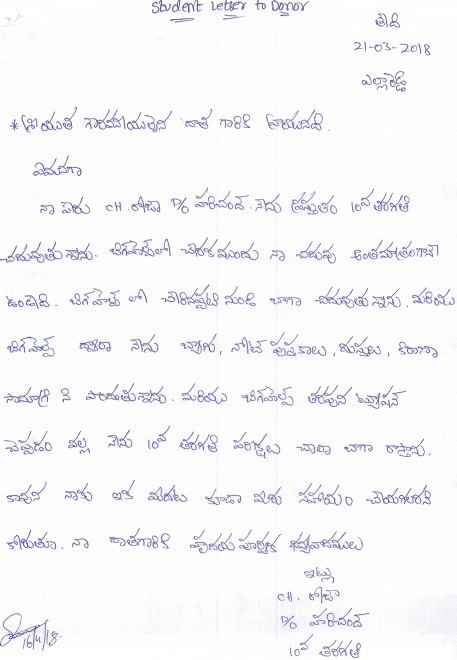 Student Letter to Donor
తేది
21-03-2018
ఎల్లారెడ్డి
* శ్రీయుత గౌరవనీయులైన దాత గారికి వ్రాయునది.
ఏమనగా
నా పేరు CH. రోజా D/o హరిచంద్. నేను ప్రస్తుతం 10వ తరగతి
చదువుతున్నాను. బిగ్‌హెల్ప్‌లో చేరకముందు నా చదువు అంతమాత్రంగానే
ఉండేది. బిగ్‌హెల్ప్ లో చేరినప్పటి నుండి బాగా చదువుతున్నాను. మరియు
బిగ్‌హెల్ప్ ద్వారా నేను బ్యాగు, నోట్ పుస్తకాలు, దుస్తులు, కిరాణా
సామాగ్రి ని పొందుతున్నాను. మరియు బిగ్‌హెల్ప్ తరపున ట్యూషన్
చెప్పడం వల్ల నేను 10వ తరగతి పరీక్షలు చాలా బాగా రాస్తాను.
కావున నాకు ఇక ముందు కూడా మీరు సహాయం చేయగలరని
కోరుతూ. నా దాతగారికి హృదయ పూర్వక ధన్యవాదములు
ఇట్లు
CH. రోజా
D/o హరిచంద్
10వ తరగతి
16/4/18.